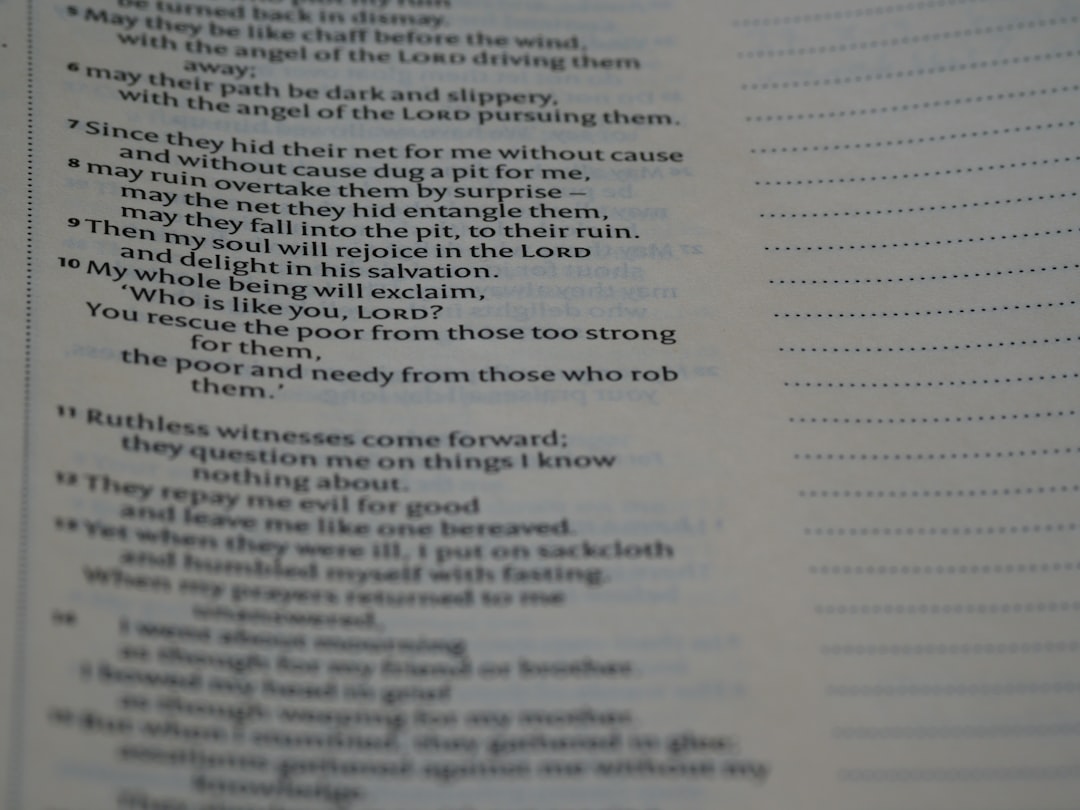 be turned back in dismay.
5 May they be like chaff before the wind,
with the angel of the LORD driving them
away;
6 may their path be dark and slippery,
with the angel of the LORD pursuing them.
7 Since they hid their net for me without cause
and without cause dug a pit for me,
8 may ruin overtake them by surprise –
may the net they hid entangle them,
may they fall into the pit, to their ruin.
9 Then my soul will rejoice in the LORD
and delight in his salvation.
10 My whole being will exclaim,
‘Who is like you, LORD?
You rescue the poor from those too strong
for them,
the poor and needy from those who rob
them.’
11 Ruthless witnesses come forward;
they question me on things I know
nothing about.
12 They repay me evil for good
and leave me like one bereaved.
13 Yet when they were ill, I put on sackcloth
and humbled myself with fasting.
When my prayers returned to me
unanswered,
14 I went about mourning
as though for my friend or brother.
I bowed my head in grief
as though weeping for my mother.
15 But when I stumbled, they gathered in glee;
assailants gathered against me without my
knowledge.